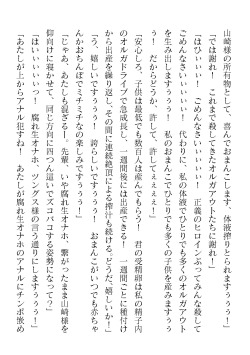 山崎様の所有物として、喜んでおまんこします、体液搾りとられますぅぅぅ！
「では謝れ！　これまで殺してきたオルガアウトたちに謝れ！
「はひいぃいぃ！　正義のヒロインぶってみんな殺して
ごめんなさいいぃぃ！　代わりに、私の体液でひとりでも多くのオルガアウト
を生み出しますぅぅぅ！　私のおまんこでひとりでも多くの子供を産みますぅ
ぅ！　だからどうか、許して、許してぇぇぇぇ！」
「安心しろ、子供は最低でも数百人は産んでもらう！　君の受精卵は私の精子内
のオルガドライブで急成長し、一週間後には出産できる！　一週間ごとに種付け
から出産を繰り返し、その間に連続絶頂による搾汁も続ける、どうだ、嬉しいか！」
「う、嬉しいですぅぅぅ！　誇らしいですぅぅぅ！　おまんこがいつでも赤ちゃ
んかおちんぽでミチミチなの楽しみですぅぅぅ！」
「じゃあ、あたしも混ざる！　先輩、いや腐れ生オナホ、繋がったまま山崎様を
仰向けに寝かせて、同じ方向に四つん這いでズコバコする姿勢になって？」
「はいぃいぃっ！　腐れ生オナホ、ツングス様の言う通りにしますぅぅぅ！」
「あたしが上からアナルにチンポ嵌め